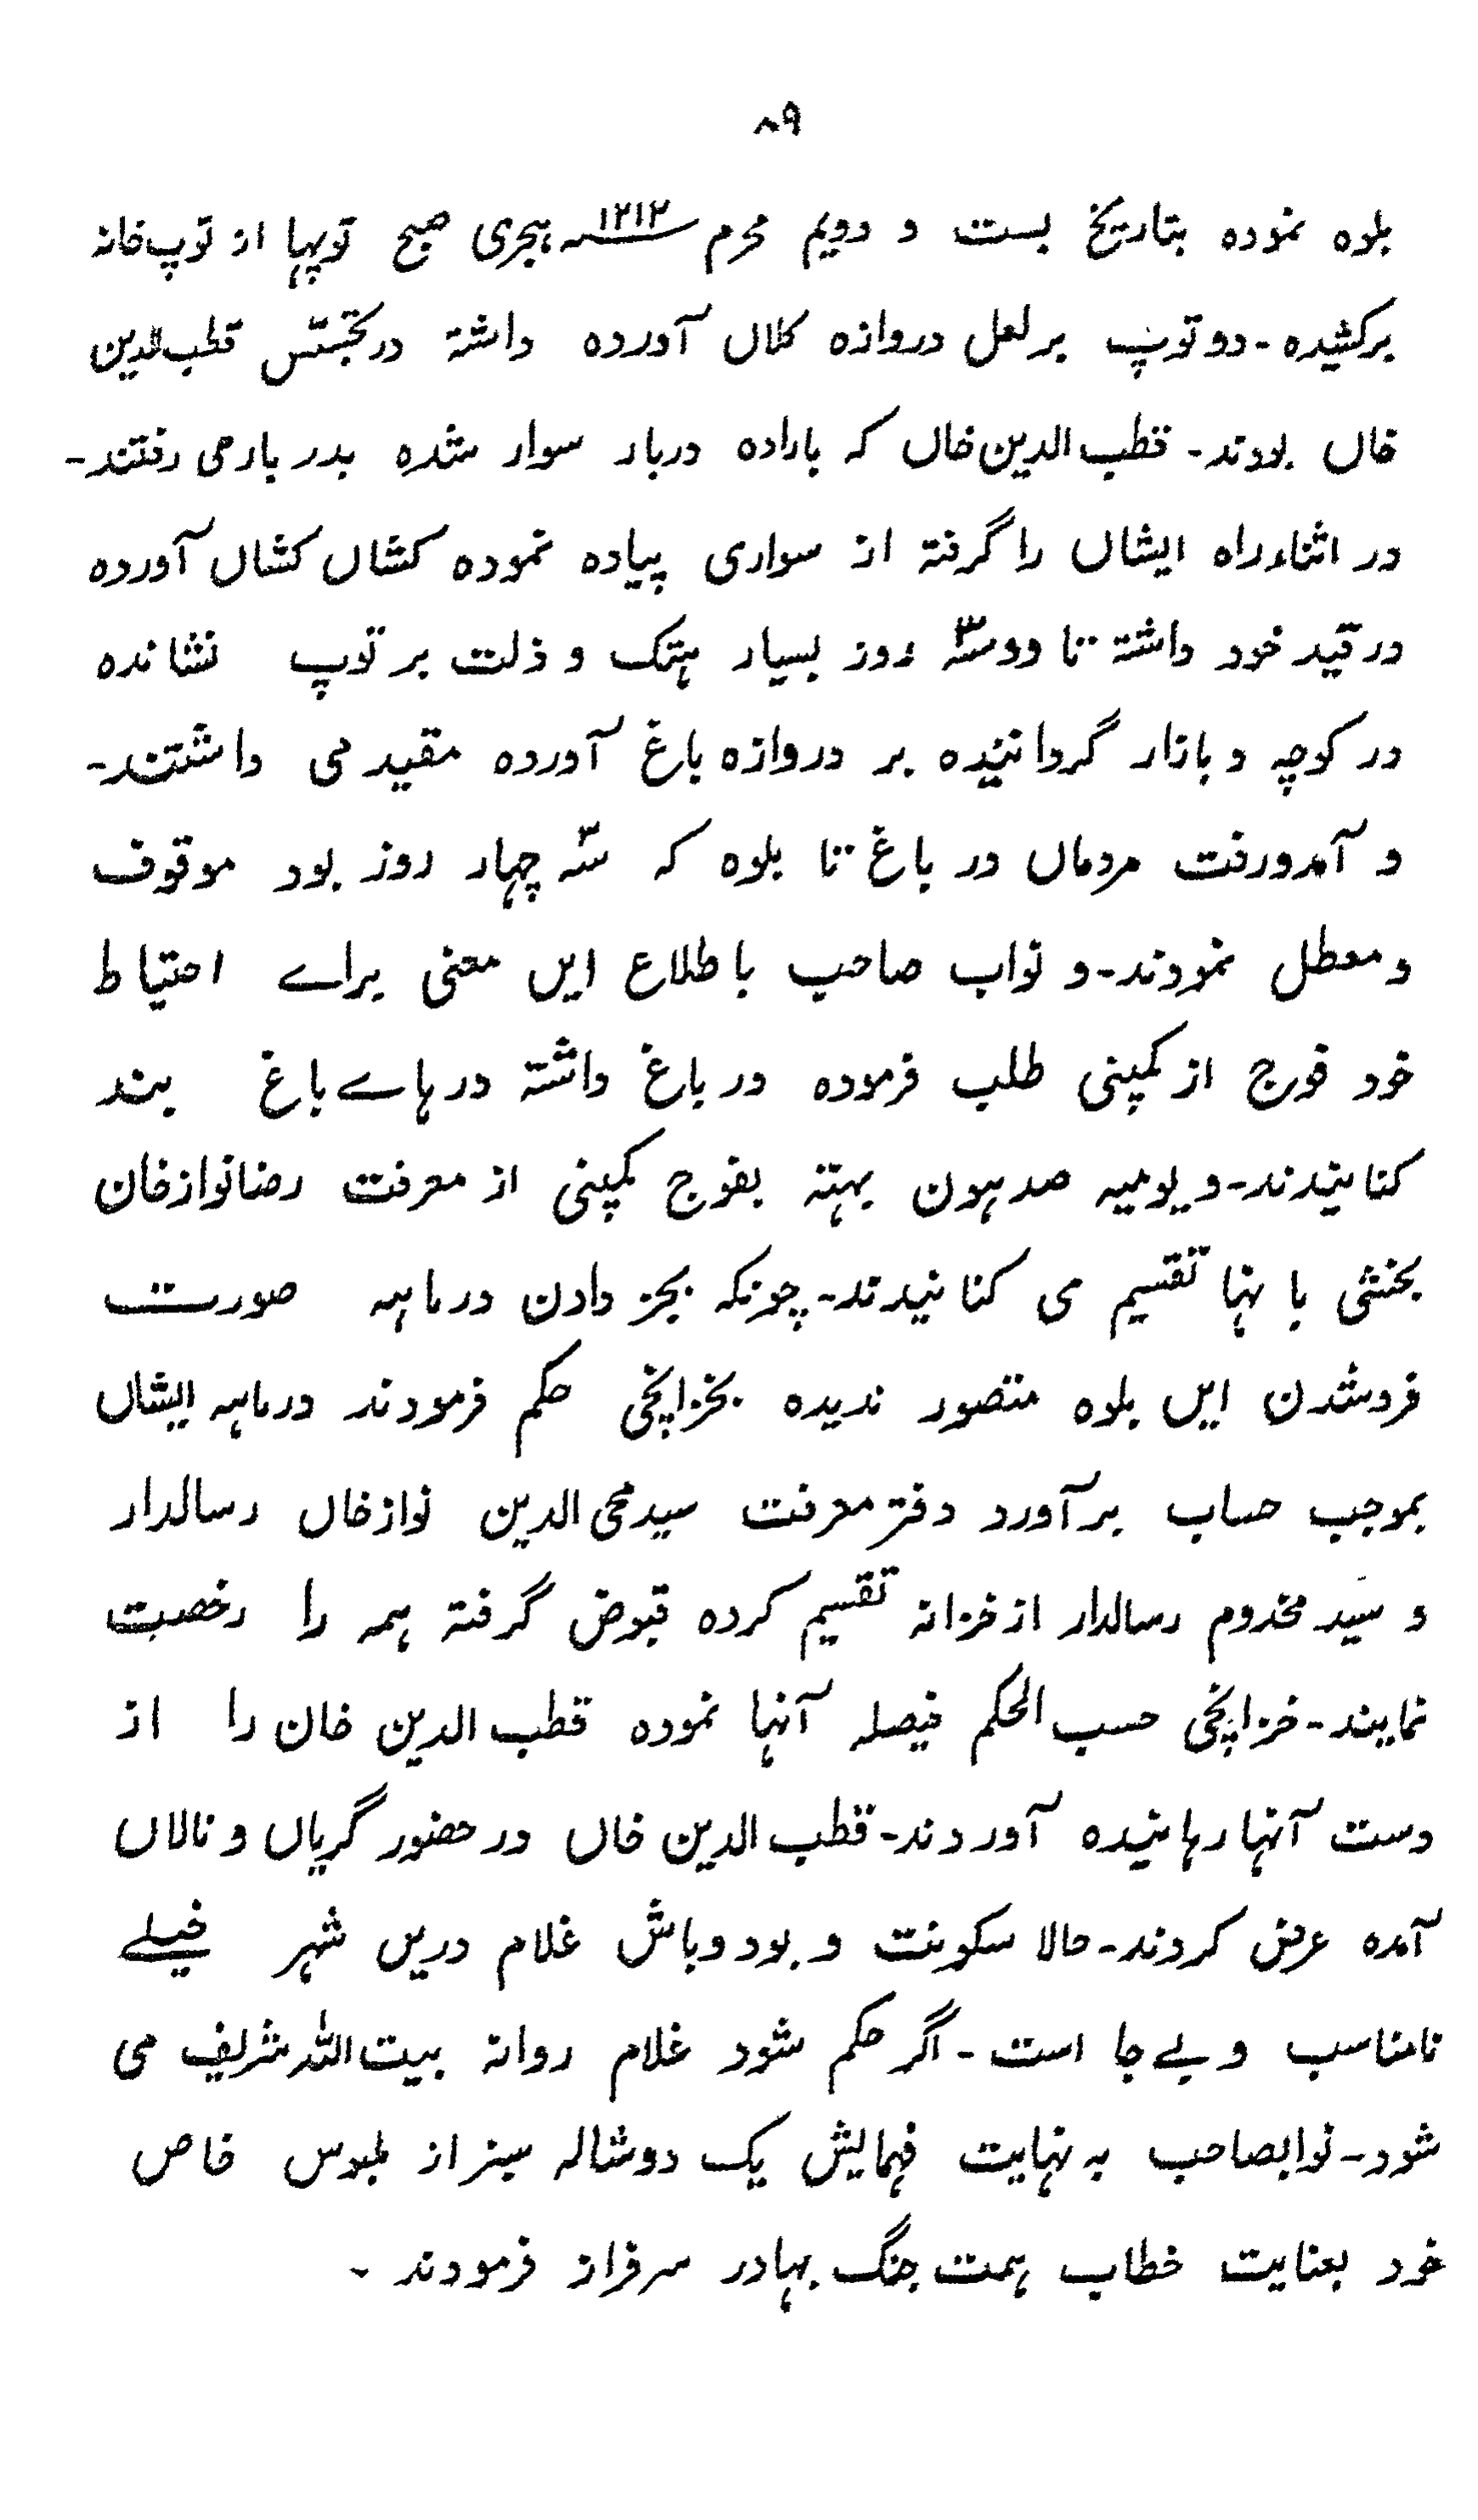 ۸۹
بلوه نموده بتاریخ بست و دویم محرم ۱۲۱۲؁ ہجری صبح توپہا از توپ‌خانہ
برکشیده۔ دو توپ بر لعل دروازه کلاں آورده داشتہ در تجسّس قطب‌الدین
خاں بودند۔ قطب الدین خاں کہ باراده دربار سوار شده بدربار می رفتند۔
در اثناء راه ایشاں را گرفتہ از سواری پیاده نموده کشاں کشاں آورده
در قید خود داشتہ تا دو سہ روز بسیار ہتک و ذلت بر توپ نشانده
در کوچہ و بازار گردانیده بر دروازه باغ آورده مقید می داشتند۔
و آمدورفت مردماں در باغ تا بلوه کہ سہ چہار روز بود موقوف
و معطل نمودند۔ و نواب صاحب باطلاع ایں معنی براے احتیاط
خود فوج از کمپنی طلب فرموده در باغ داشتہ درہاے باغ بند
کنانیدند۔ و یومیہ صد ہون بہتہ بفوج کمپنی از معرفت رضا نواز خان
بخشی بانہا تقسیم می کنانیدند۔ چونکہ بجز دادن درماہہ صورت
فروشدن ایں بلوه متصور ندیده بخزانچی حکم فرمودند درماہہ ایشاں
بموجب حساب برآورد دفتر معرفت سید محی الدین نواز خاں رسالدار
و سیّد مخدوم رسالدار از خزانہ تقسیم کرده قبوض گرفتہ ہمہ را رخصت
نمایند۔ خزانچی حسب الحکم فیصلہ آنہا نموده قطب الدین خان را از
دست آنہا رہانیده آوردند۔ قطب الدین خاں در حضور گریاں و نالاں
آمده عرض کردند۔ حالا سکونت و بود و باش غلام دریں شہر خیلے
نامناسب و بے جا است۔ اگر حکم شود غلام روانہ بیت اللہ شریف می
شود۔ نوابصاحب بہ نہایت فہمایش یک دوشالہ سبز از ملبوس خاص
خود بعنایت خطاب ہمت جنگ بہادر سرفراز فرمودند۔